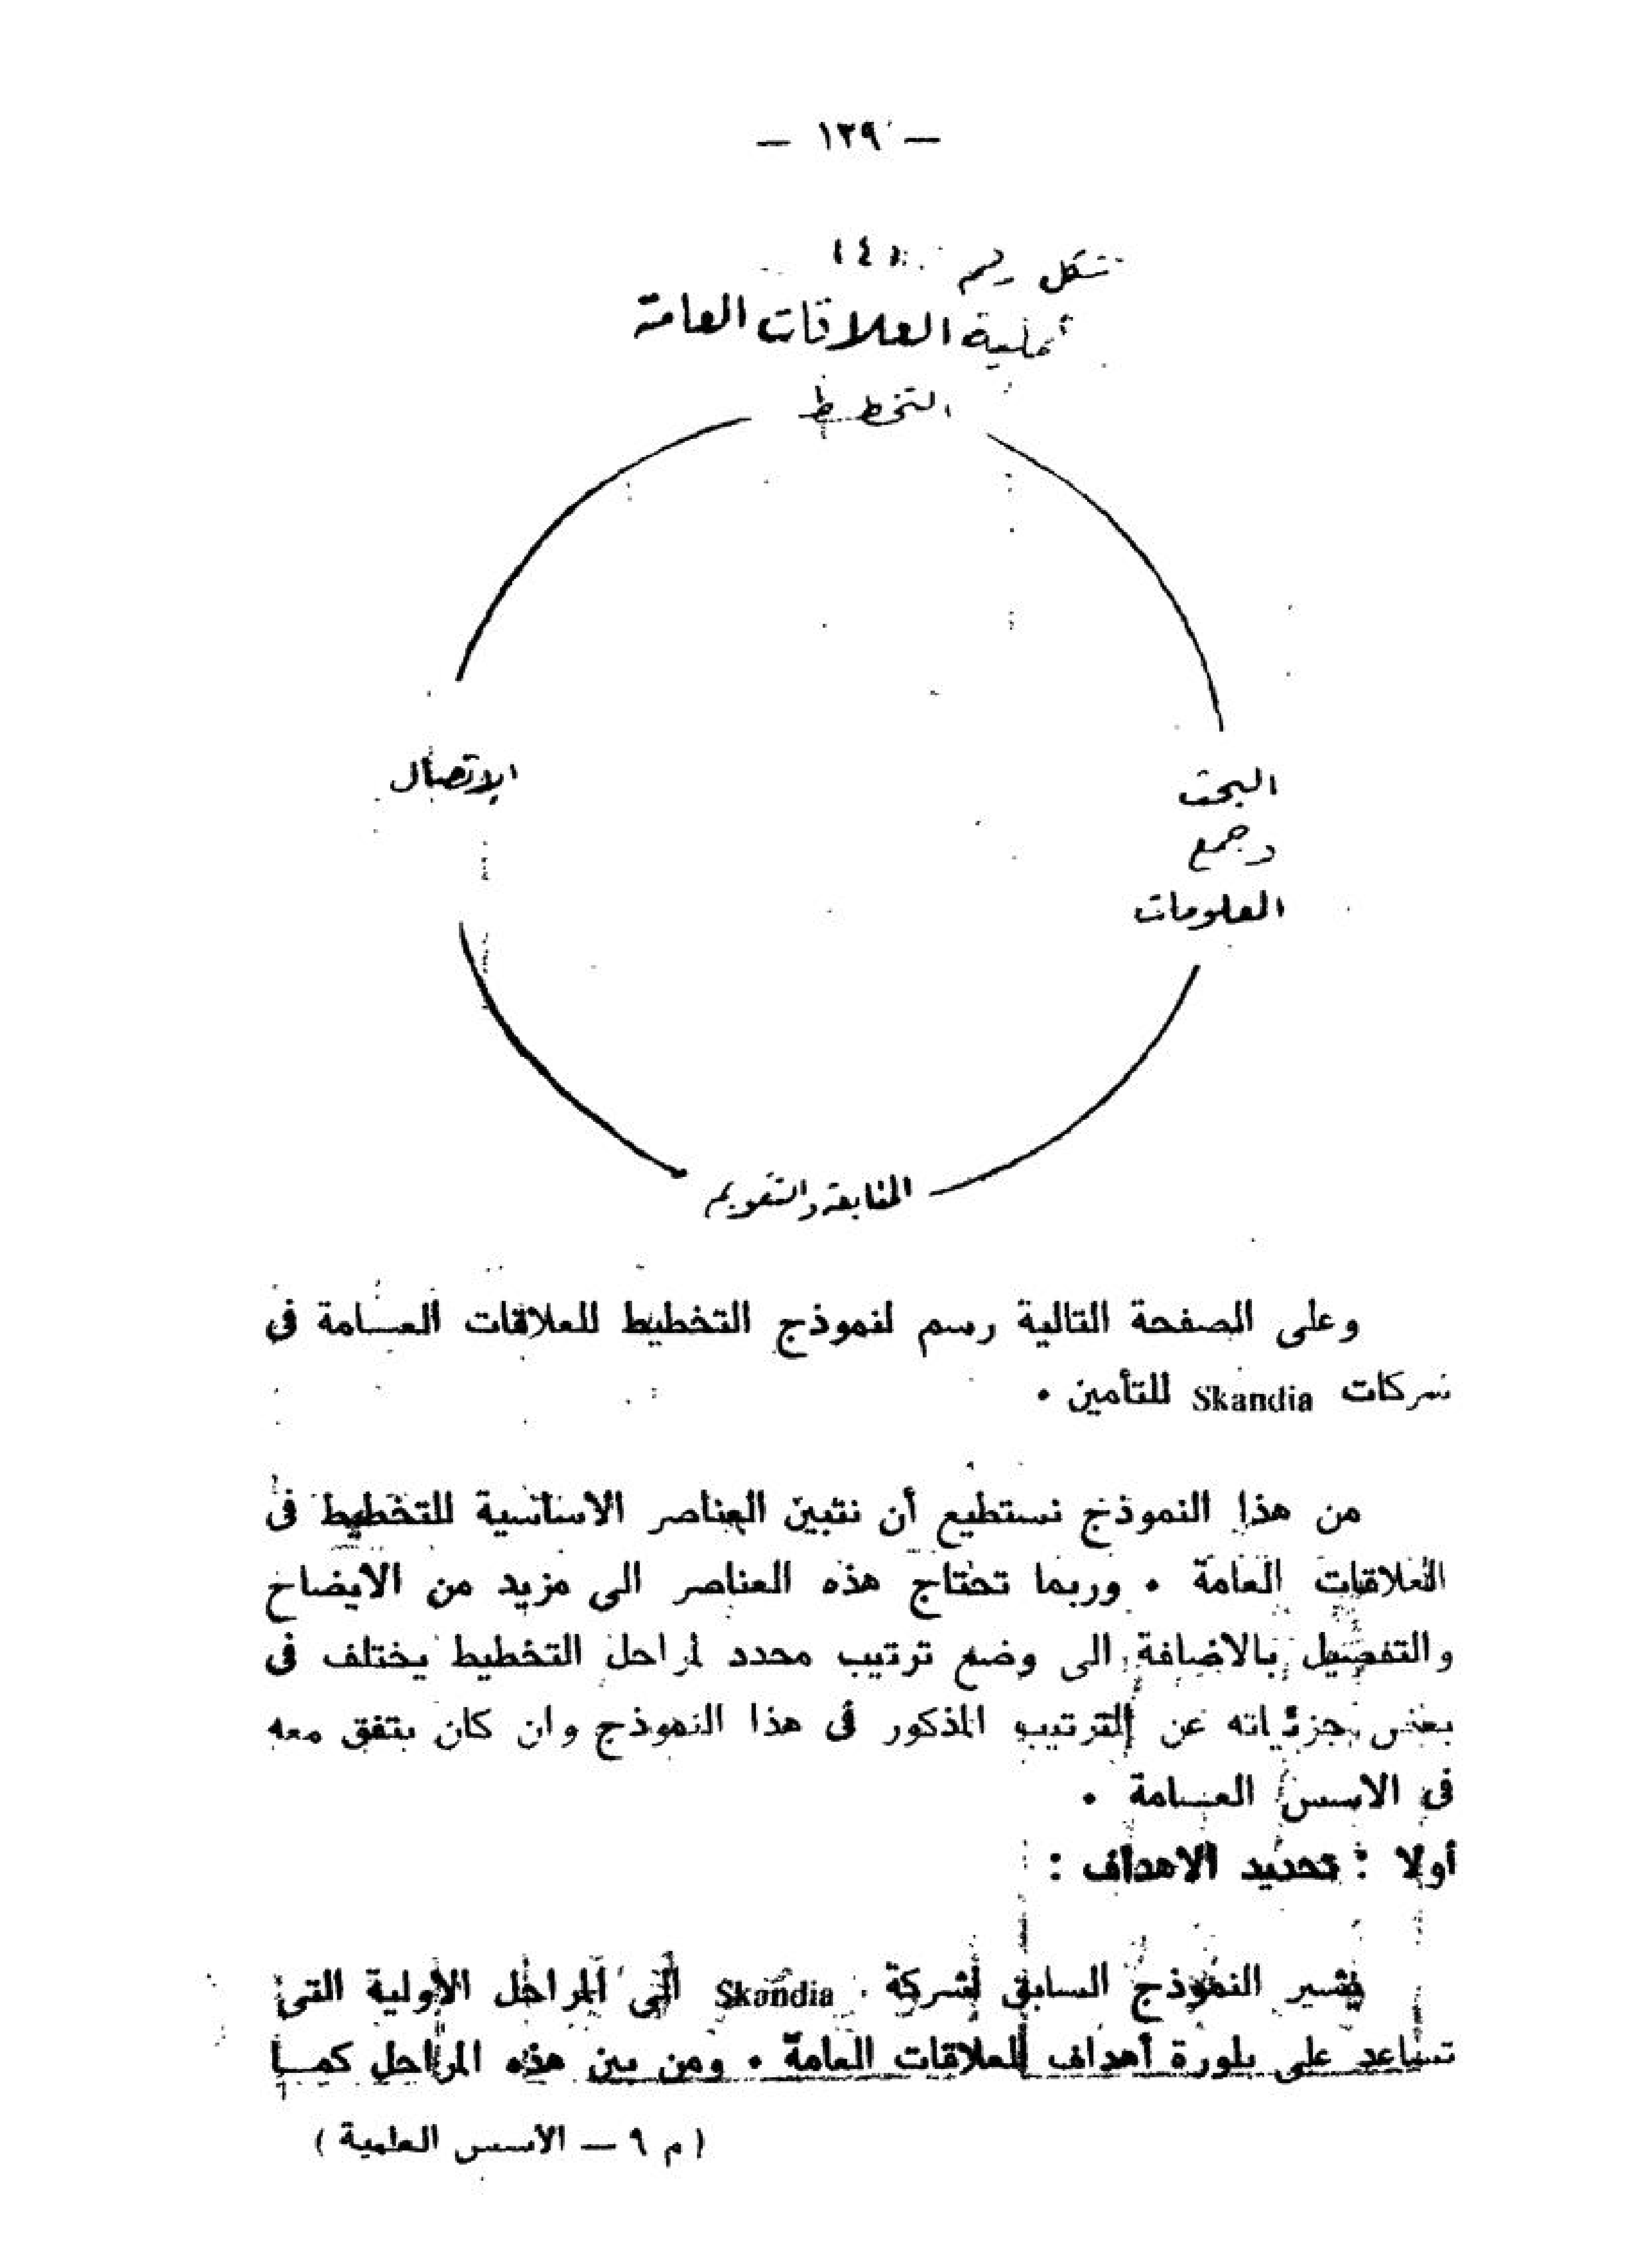 — ١٢٩ —
شكل رقم (٤)
عملية العلاقات العامة
التخطيط
الاتصال
البحث
وجمع
المعلومات
المتابعة والتقويم
وعلى الصفحة التالية رسم لنموذج التخطيط للعلاقات العـامة فى
شركات Skandia للتأمين .
من هذا النموذج نستطيع أن نتبين العناصر الاساسية للتخطيط فى
العلاقات العامة . وربما تحتاج هذه العناصر الى مزيد من الايضاح
والتفصيل بالاضافة الى وضع ترتيب محدد لمراحل التخطيط يختلف فى
بعض جزئياته عن الترتيب المذكور فى هذا النموذج وان كان يتفق معه
فى الاسس العـامة .
أولا : تحديد الاهداف :
يشير النموذج السابق لشركة Skandia الى المراحل الأولية التى
تساعد على بلورة أهداف العلاقات العامة . ومن بين هذه المراحل كمـا
( م ٩ — الأسس العلمية )